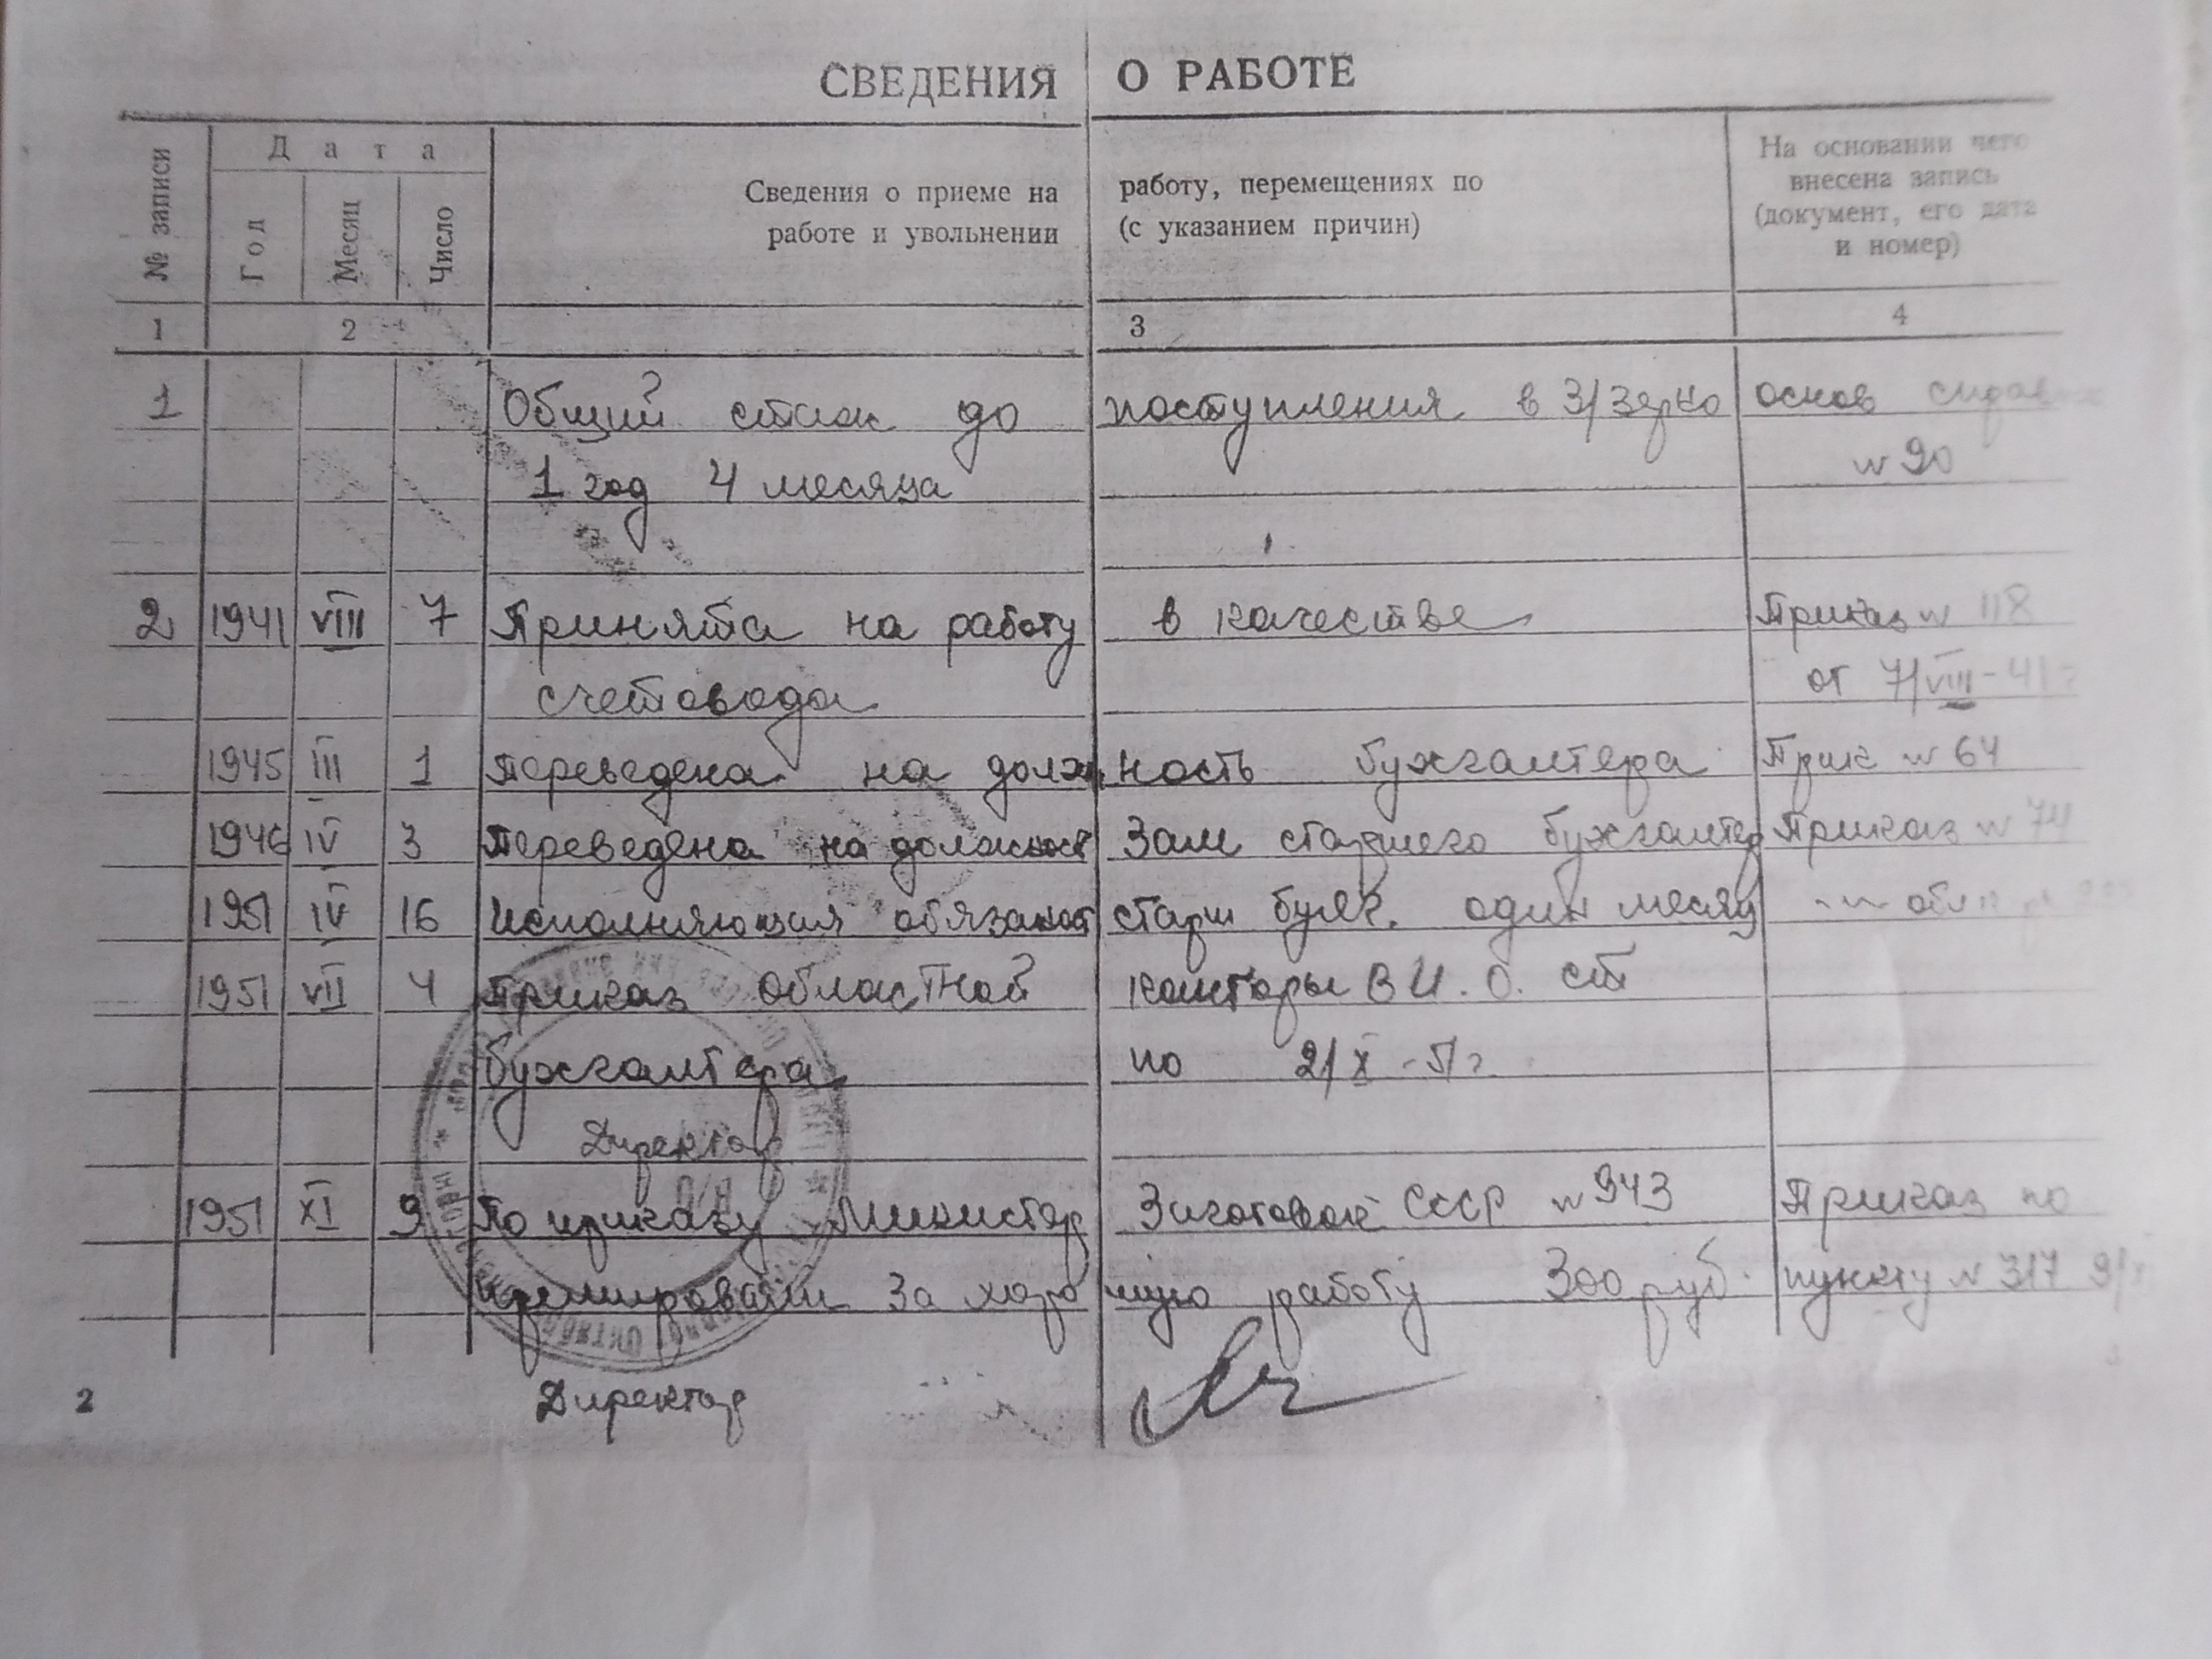 СВЕДЕНИЯ О РАБОТЕ
№ записи
Дата
Год
Месяц
Число
Сведения о приеме на работу, перемещениях по
работе и увольнении (с указанием причин)
На основании чего
внесена запись
(документ, его дата
и номер)
1 2 3 4
1 Общий стаж до поступления в З/зерно основ
1 год 4 месяца № 90
2 1941 VIII 7 Принята на работу в качестве Приказ № 118
счетовода от 7/VIII-41г
1945 III 1 Переведена на должность бухгалтера Прик № 64
1946 IV 3 Переведена на должност Зам старшего бухгалтер Приказ № 74
1951 IV 16 Исполняющия обязаност старш бухг. один месяц
1951 VII 4 Приказ областной конторы В И. О. ст
бухгалтера по 2/X-51г
Директор
1951 XI 9 По приказу Министер Заготовок СССР № 943 Приказ по
премировать за хорошую работу 300 руб. пункту № 317
2 Директор